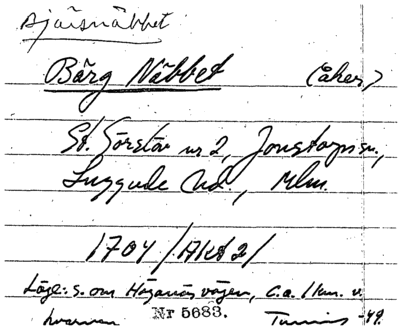 Bjärsnäbbet
Bärg Näbbet (åker)
St. Görslöv nr 2, Jonstorps sn.,
Luggude hd., Mlm.
1704 /Akt 2/
Läge: s. om Höganäsvägen, c.a. 1 km. v.
Nr 5683. -49.